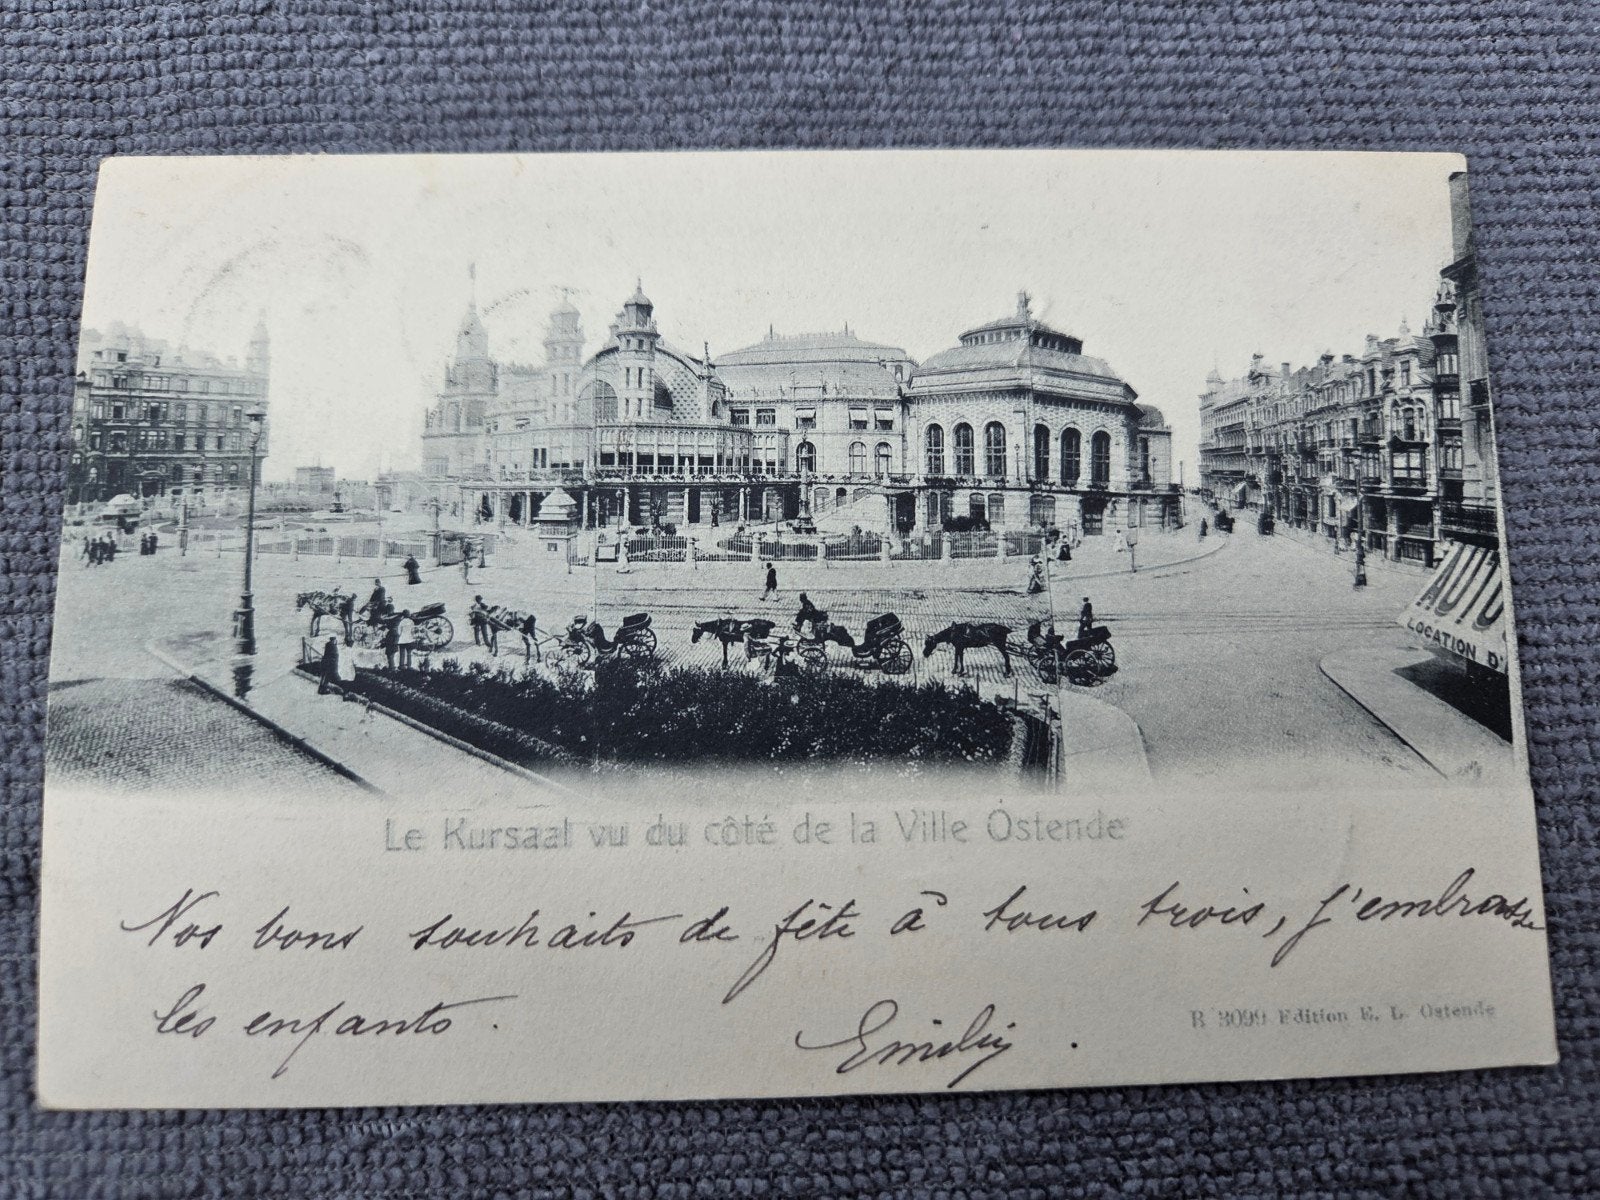 AUTO
LOCATION D'
Le Kursaal vu du côté de la Ville Ostende
Nos bons souhaits de fête à tous trois, j'embrasse
les enfants.
R 3099 Edition E. L. Ostende